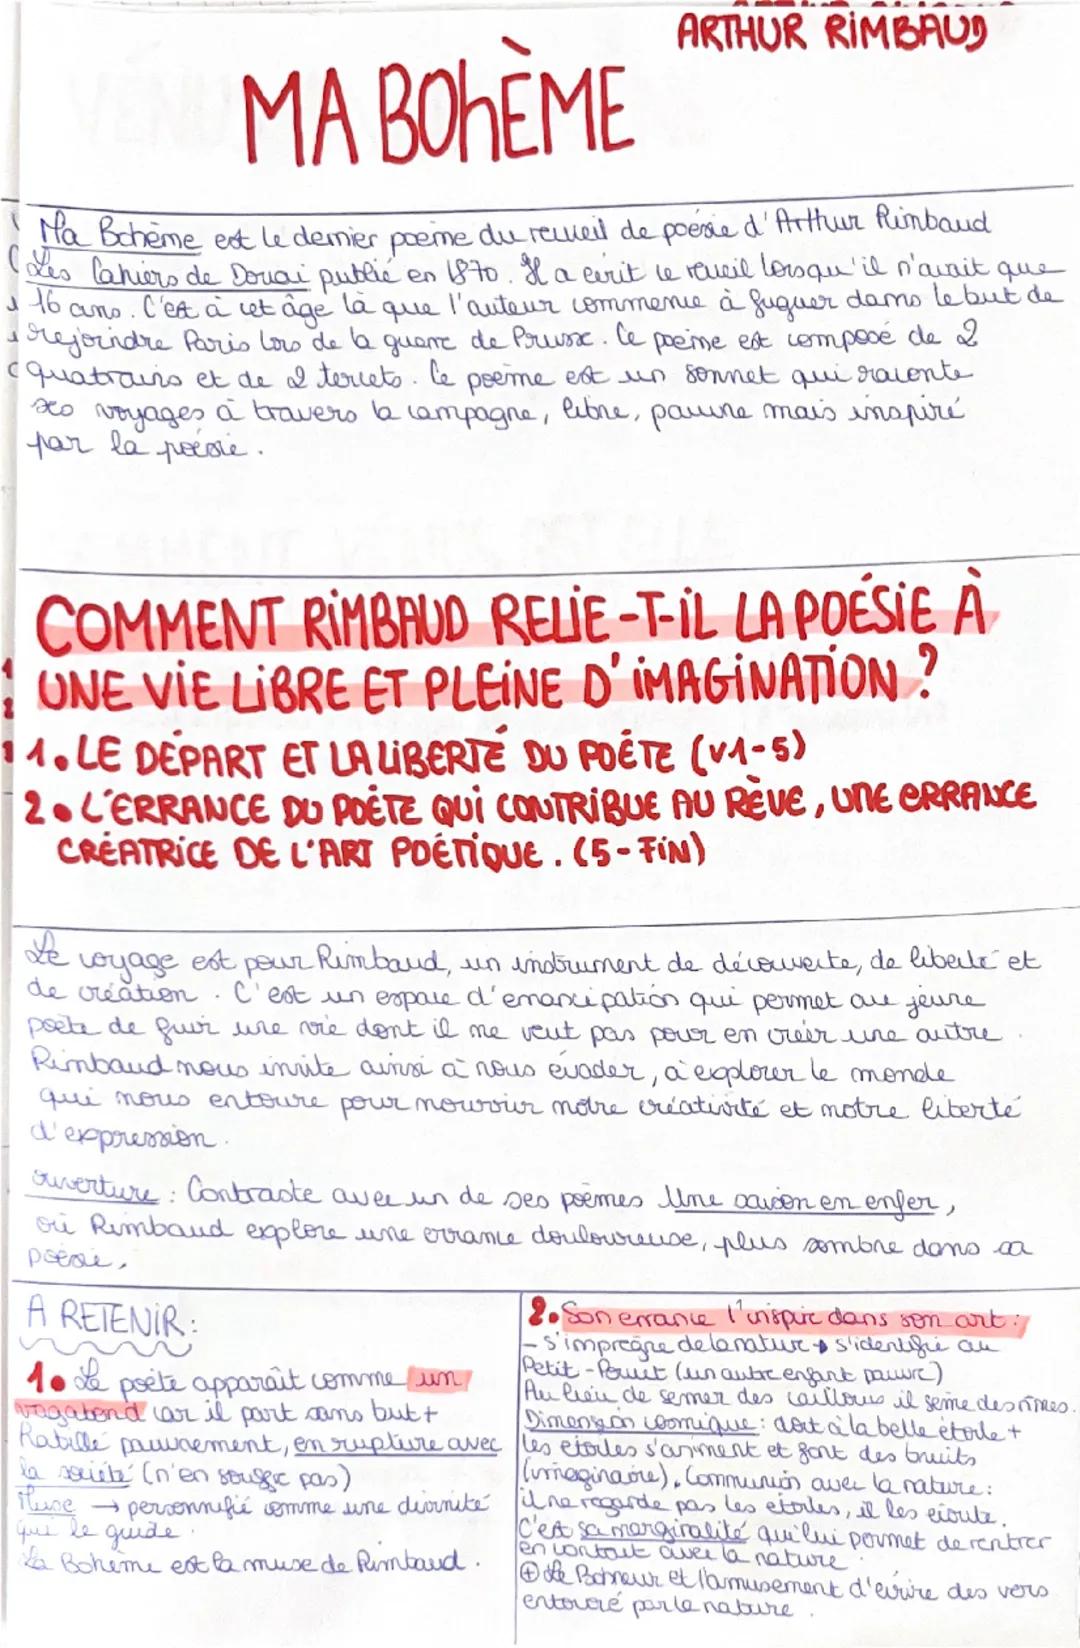 ARTHUR RiMBAUD
MA BOhÈME
Ma Bohème est le dernier poème du recueil de poésie d'Arthur Rimbaud
Les Cahiers de Douai publié en 1870. Il a écrit le recueil lorsqu'il n'avait que
16 ans. C'est à cet âge là que l'auteur commence à fuguer dans le but de
rejoindre Paris lors de la guerre de Prusse. Ce poème est composé de 2
quatrains et de 2 tercets. Ce poème est un sonnet qui raconte
ses voyages à travers la campagne, libre, pauvre mais inspiré
par la poésie.
COMMENT RiMBAUD RELiE-T-iL LA POÉSiE À
UNE ViE LiBRE ET PLEiNE D'iMAGiNATiON ?
1. LE DÉPART ET LA LiBERTÉ DU POÈTE (v1-5)
2. L'ERRANCE DU POÈTE QUi CONTRiBUE AU RÊVE, UNE ERRANCE
CRÉATRiCE DE L'ART POÉTiQUE. (5-FiN)
Le voyage est pour Rimbaud, un instrument de découverte, de liberté et
de création. C'est un espace d'émancipation qui permet au jeune
poète de fuir une vie dont il ne veut pas pour en créer une autre.
Rimbaud nous invite ainsi à nous évader, à explorer le monde
qui nous entoure pour nourrir notre créativité et notre liberté
d'expression.
ouverture : Contraste avec un de ses poèmes Une saison en enfer,
où Rimbaud explore une errance douloureuse, plus sombre dans sa
poésie.
A RETENiR :
1. Le poète apparaît comme un
vagabond car il part sans but +
Habillé pauvrement, en rupture avec
la société (n'en souffre pas)
Muse → personnifié comme une divinité
qui le guide.
La Bohème est la muse de Rimbaud.
2. Son errance l'inspire dans son art :
- s'imprègne de la nature → s'identifie au
Petit-Poucet (un autre enfant pauvre)
Au lieu de semer des cailloux il sème des rimes.
Dimension cosmique : dort à la belle étoile +
les étoiles s'animent et font des bruits
(imaginaire). Communion avec la nature :
il ne regarde pas les étoiles, il les écoute.
C'est sa marginalité qui lui permet de rentrer
en contact avec la nature.
⊕ Le Bonheur et l'amusement d'écrire des vers
entouré par la nature.